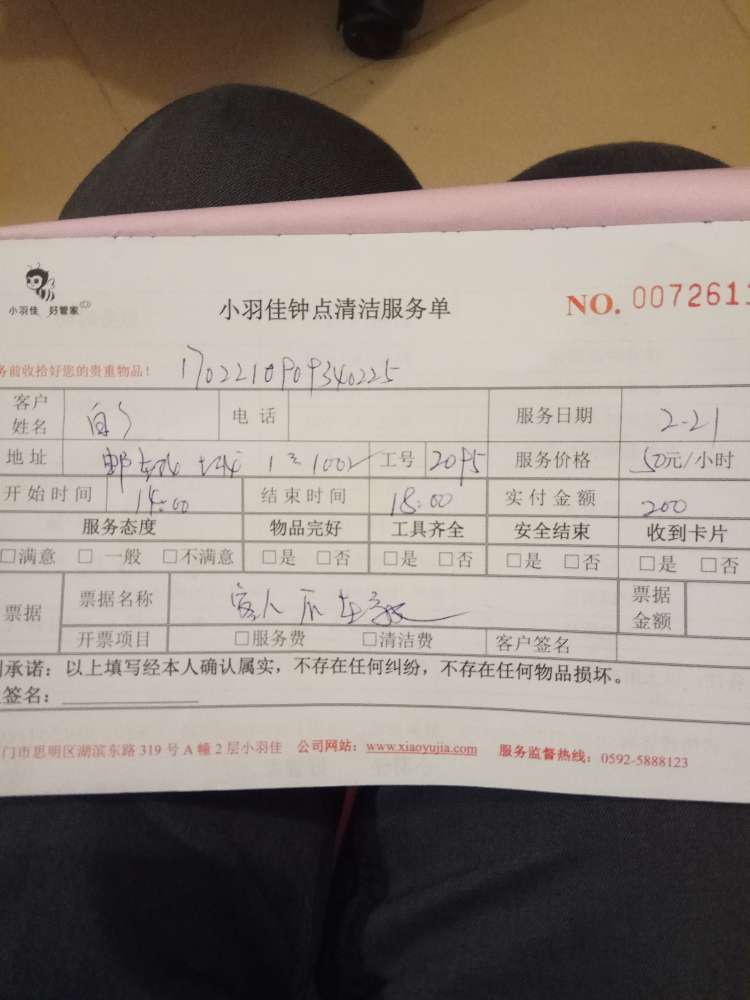 小羽佳 好管家
小羽佳钟点清洁服务单
NO. 007261
务前收拾好您的贵重物品！ 1702210909340225
客户姓名 电话 服务日期 2-21
地址 1002 工号 2095 服务价格 50元/小时
开始时间 14:00 结束时间 18:00 实付金额 200
服务态度 物品完好 工具齐全 安全结束 收到卡片
□满意 □一般 □不满意 □是 □否 □是 □否 □是 □否 □是 □否
票据 票据名称 客人 票据金额
开票项目 □服务费 □清洁费 客户签名
承诺：以上填写经本人确认属实，不存在任何纠纷，不存在任何物品损坏。
签名：
门市思明区湖滨东路 319 号 A 幢 2 层小羽佳 公司网站：www.xiaoyujia.com 服务监督热线：0592-5888123